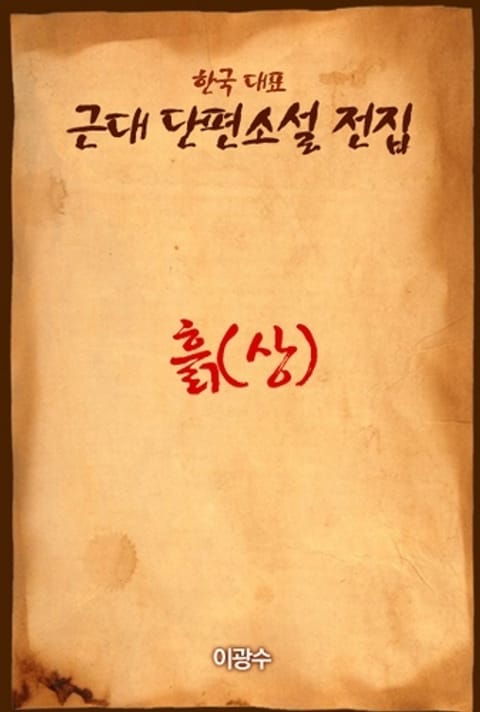 한국 대표
근대 단편소설 전집
흙(상)
이광수